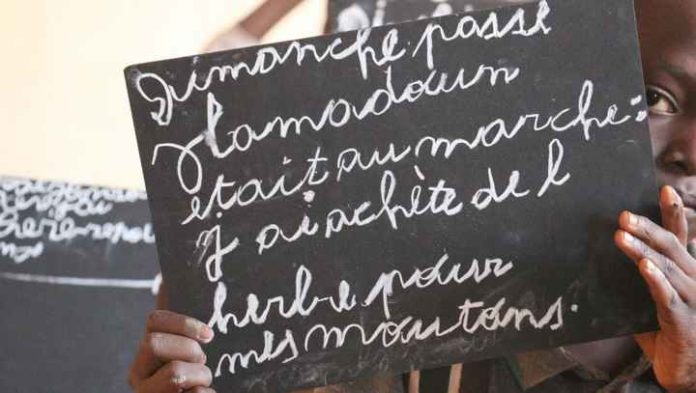 Dimanche passé
Hamadoun
était au marché:
J'ai achète de l
herbe pour
mes moutons.